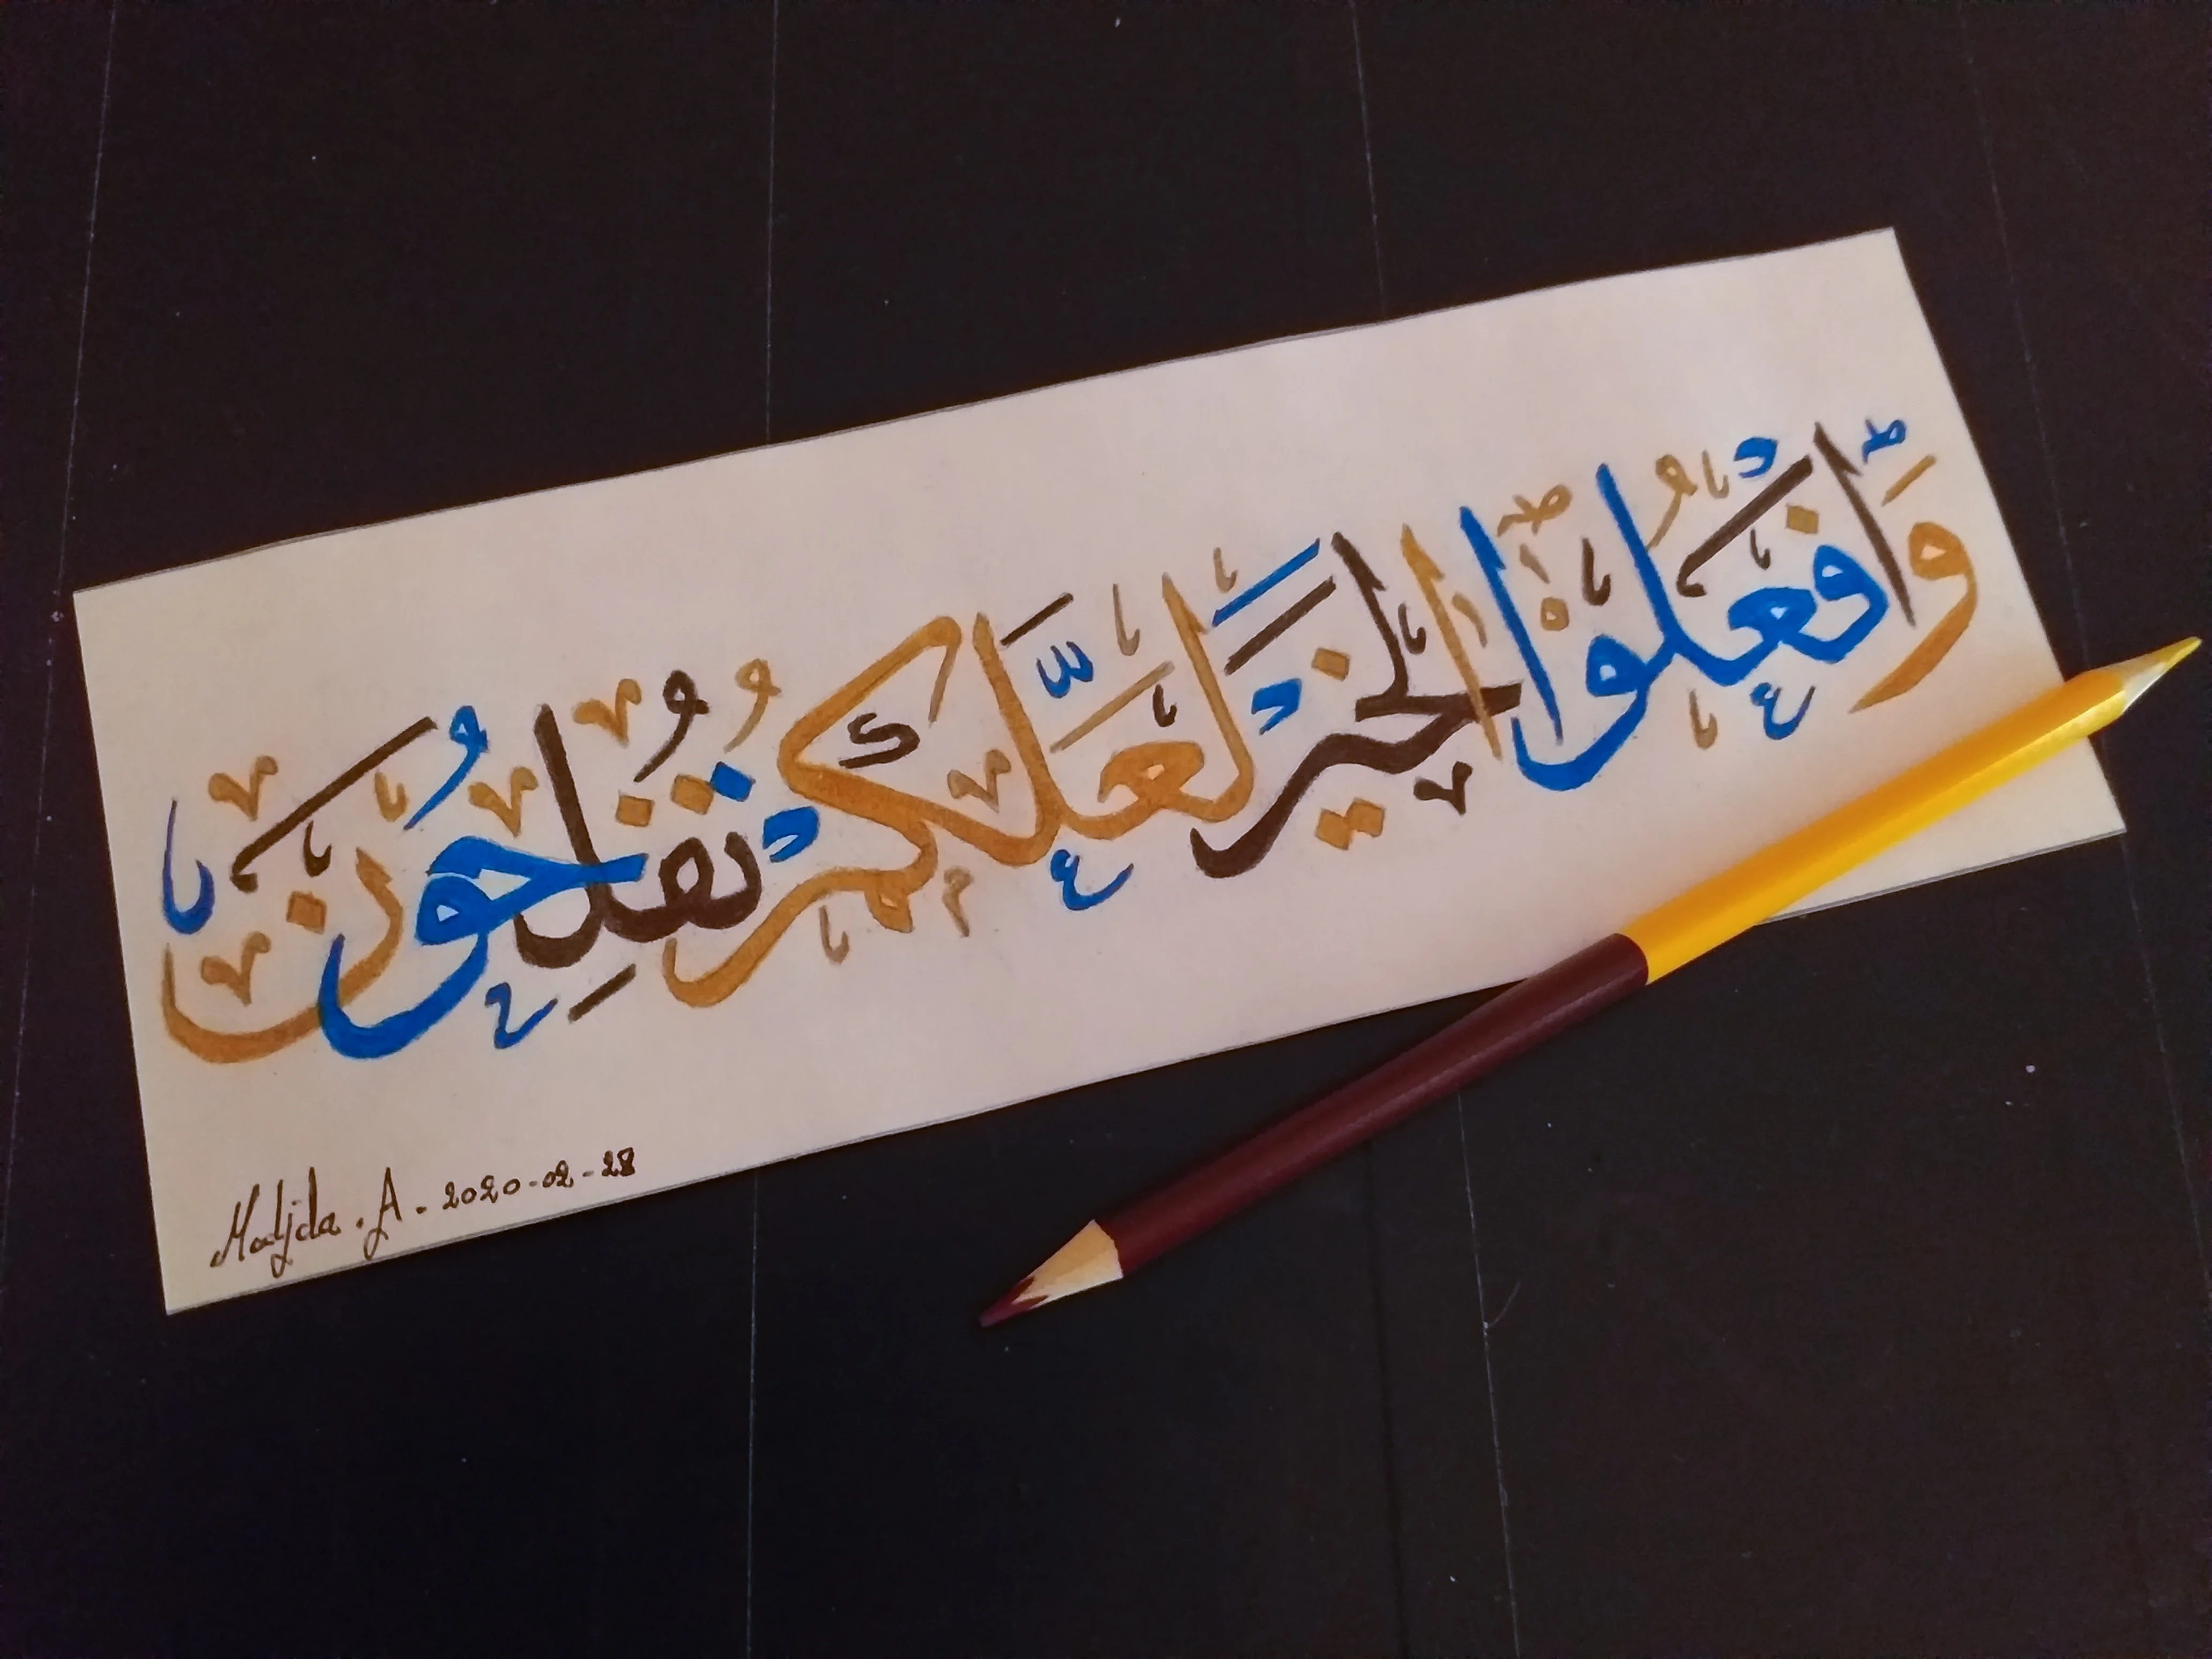 وَٱفْعَلُوا۟ الْخَيْرَ لَعَلَّكُمْ تُفْلِحُونَ
Madjda . A - 2020-02-28